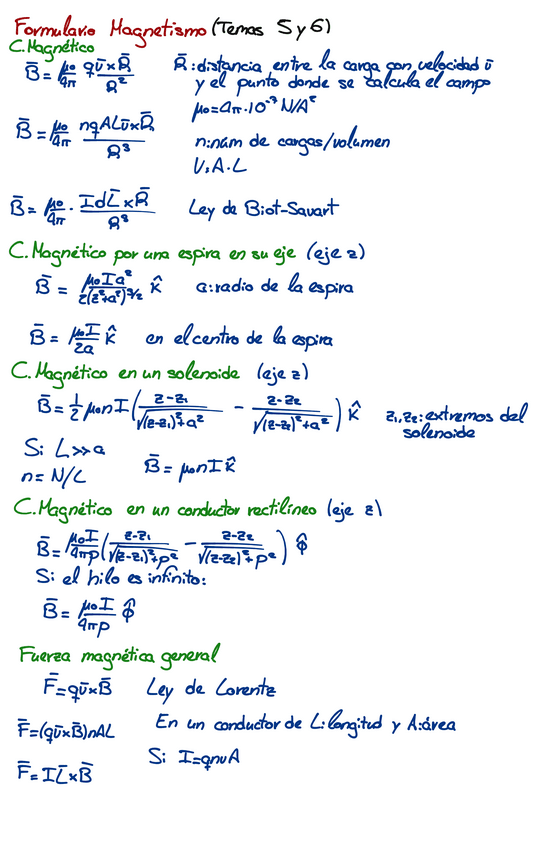 Formulario Magnetismo (Temas 5 y 6)
C. Magnético
B̄ = μ₀/4π qῡ×R̄/R² R̄: distancia entre la carga con velocidad ῡ
y el punto donde se calcula el campo
μ₀=4π·10⁻⁷ N/A²
B̄ = μ₀/4π nqALῡ×R̄/R³ n: núm de cargas/volumen
V: A·L
B̄ = μ₀/4π · IdL̄×R̄/R³ Ley de Biot-Savart
C. Magnético por una espira en su eje (eje z)
B̄ = μ₀Ia²/2(z²+a²)^3/2 k̂ a: radio de la espira
B̄ = μ₀I/2a k̂ en el centro de la espira
C. Magnético en un solenoide (eje z)
B̄ = 1/2 μ₀nI(z-z₁/√(z-z₁)²+a² - z-z₂/√(z-z₂)²+a²) k̂ z₁,z₂: extremos del
solenoide
Si L>>a
n = N/L B̄ = μ₀nI k̂
C. Magnético en un conductor rectilíneo (eje z)
B̄ = μ₀I/4πρ(z-z₁/√(z-z₁)²+ρ² - z-z₂/√(z-z₂)²+ρ²) ϕ̂
Si el hilo es infinito:
B̄ = μ₀I/4πρ ϕ̂
Fuerza magnética general
F̄=qῡ×B̄ Ley de Lorentz
F̄=(qῡ×B̄)nAL En un conductor de L: longitud y A: área
Si I=qnυA
F̄=IL̄×B̄